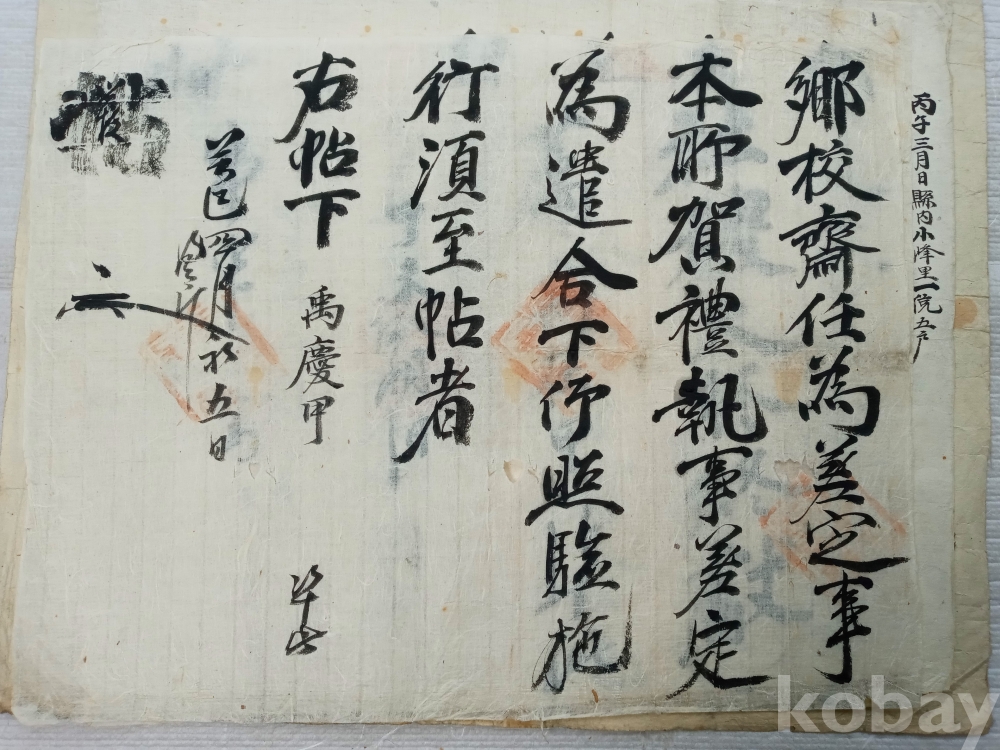 丙午三月日縣內小峰里一院五戶
鄉校齋任為差定事
本所賀禮執事差定
為遣合下仰照驗施
行須至帖者
右帖下 禹慶甲
巳四月 五日
kobay